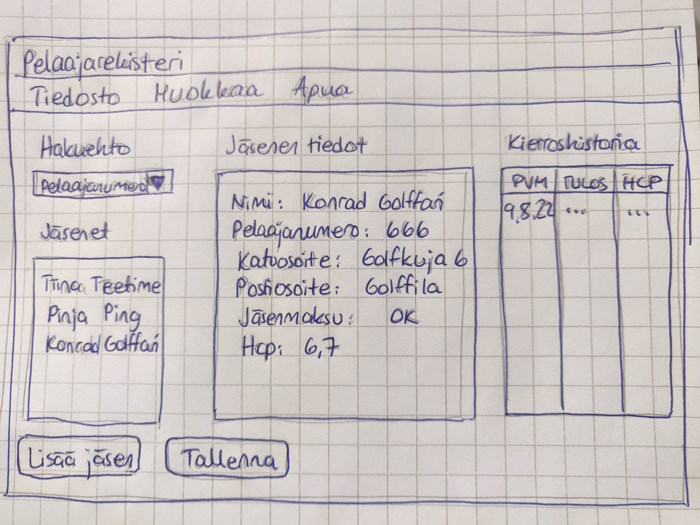 Pelaajarekisteri
Tiedosto Muokkaa Apua
Hakuehto
Pelaajanumero
Jäsenet
Tiina Teetime
Pinja Ping
Konrad Golffari
Jäsenen tiedot
Nimi: Konrad Golffari
Pelaajanumero: 666
Katuosoite: Golfkuja 6
Postiosoite: Golffila
Jäsenmaksu: OK
Hcp: 6,7
Kierroshistoria
PVM TULOS HCP
9.8.22 ... ...
Lisää jäsen
Tallenna